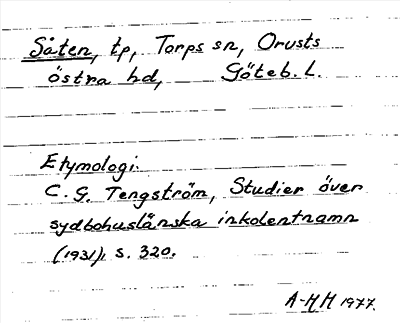 Säten, tp, Torps sn, Orusts
östra hd, Göteb. L.
Etymologi:
C. G. Tengström, Studier över
sydbohuslänska inkolentnamn
(1931), s. 320.
A-HM 1977.